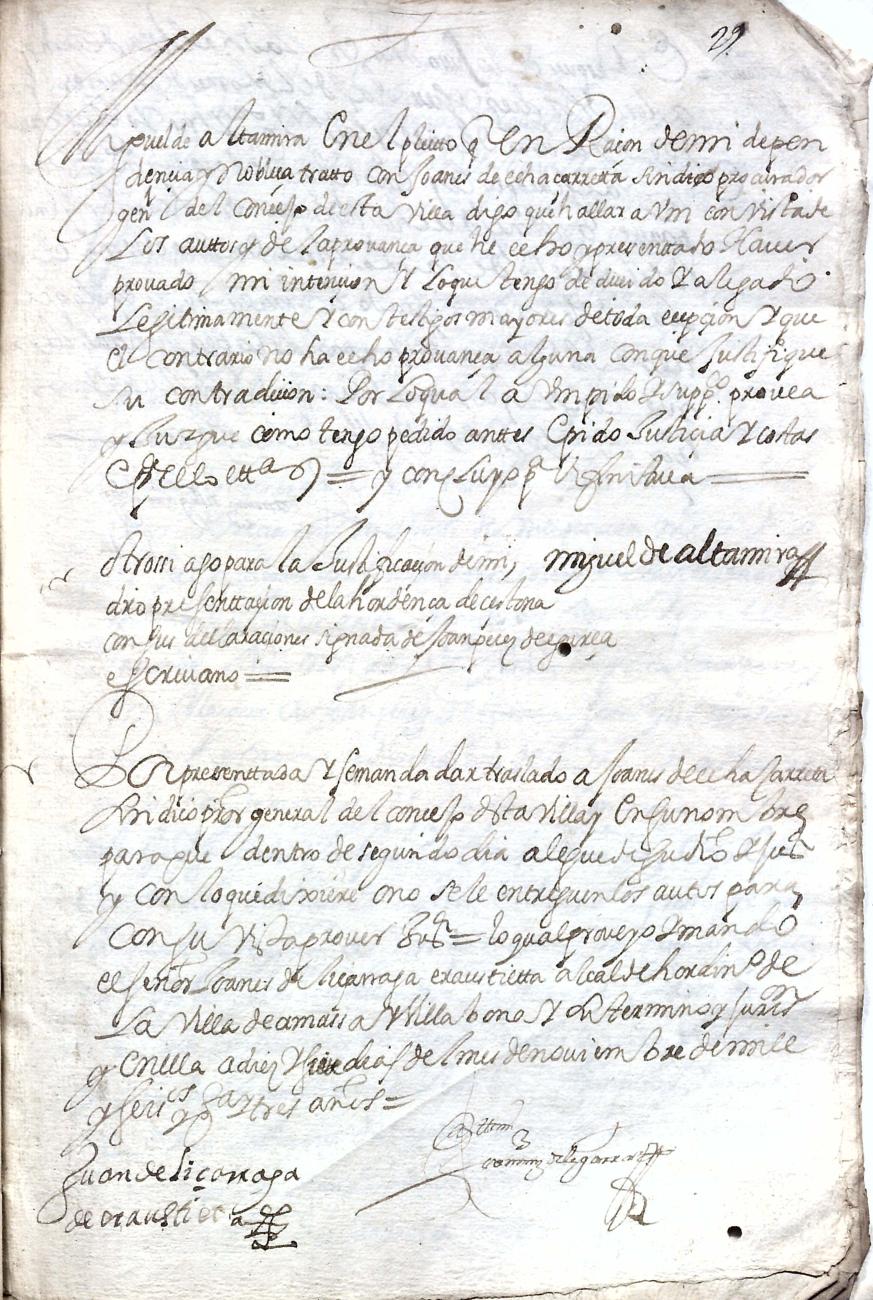 29
Miguel de altamira Enel pleitto q En Raçon demi depen
dençia y Nobleça tratto con Joanes de echacarreta sindico procurador
gen l del Conçejo de esta Villa digo que hallara Vm con Vista de
Los auttos y de la provança que he echo y presenttado Haver
provado mi intençion Y loque tengo deduçido Y alegado
Legitimamente Y con testigos mayores de toda eçepçion Y que
el Contrario no ha echo provança alguna conque Justifique
su contradiçion: Por Loqual a Vm pido Y supp.co provea
y Juzgue como tengo pedido anttes E pido Justicia Y costas
E p ello etta = y
Otrossi ago para la Justificaçion de mi, miguel de altamira
dro presenttaçion de la hordença de cestona
con sus declaraciones signada de Joan perez de egurea
escrivano =
Por presenttada Y se manda dar traslado a Joanes de echacarreta
Sindico pror general del conçejo desta Villa y En su nombre
para que dentro de segundo dia alegue de su dro Y just
y con loque dixiere o no se le entreguen los autos para
Con su Vista prover Just = lo qual proveyo Y mando
el señor Joanes de liçarraga eraustietta alcalde hordino de
La Villa de amassa Y Villabona Y Su termino y juron
y En ella a diez Y siete dias del mes de noviembre de mile
y seisºs y y tres años =
Juan de liçarraga
de eraustieta